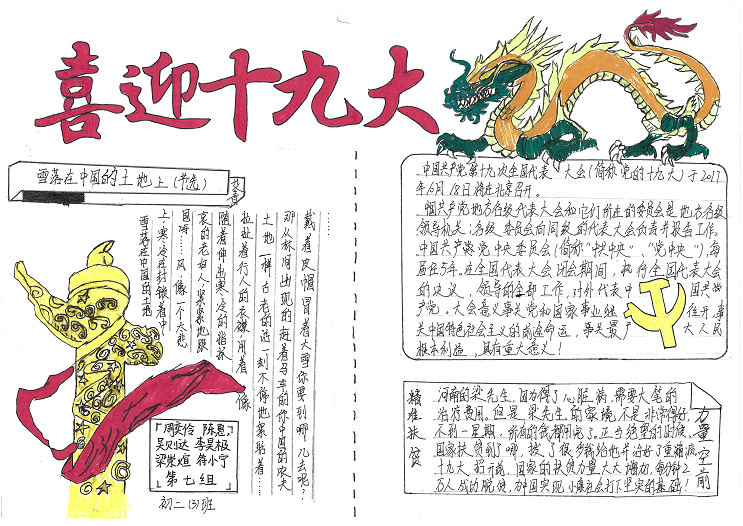 喜迎十九大
雪落在中国的土地上(节选)
艾青
雪落在中国的土地
上,寒冷在封锁着中
国呀……风,像一个太悲
哀的老妇人,紧紧地跟
随着,伸出寒冷的指爪
拉扯着行人的衣襟,用着像
土地一样古老的话,一刻不停地絮聒着……
那从林间出现的,赶着马车的你中国的农夫
戴着皮帽冒着大雪你要到哪儿去呢?
……
陈恩
吴则达 李昊极
梁崇煊 符小宁
第七组
初二(3)班
中国共产党第十九次全国代表大会(简称党的十九大)于2017
年6月18日将在北京召开。
中国共产党地方各级代表大会和它们所在的委员会是地方各级
领导机关;各级委员会向同级的代表大会负责并报告工作。
中国共产党党中央委员会(简称"中共中央"、"党中央"),每
届任5年。在全国代表大会闭会期间,执行全国代表大会
的决议,领导的全部工作,对外代表中国共
产党。大会意义事关党和国家事业继往开,事
关中国特色社会主义的前途命运,事关最广大人民
根本利益,具有重大意义!
精准扶贫
力量空前
河南的梁先生,因为得了心脏病,需要大笔的
治疗费用。但是梁先生的家境不是非常好,
不到一星期,所有的钱都用完了。正当绝望的时候,
国家扶贫到了哪,拨了很多钱给他并治好了重病。
十九大招开前,国家的扶贫力量大大增加,每分钟2
万人成功脱贫,为中国实现小康社会打下坚实的基础!